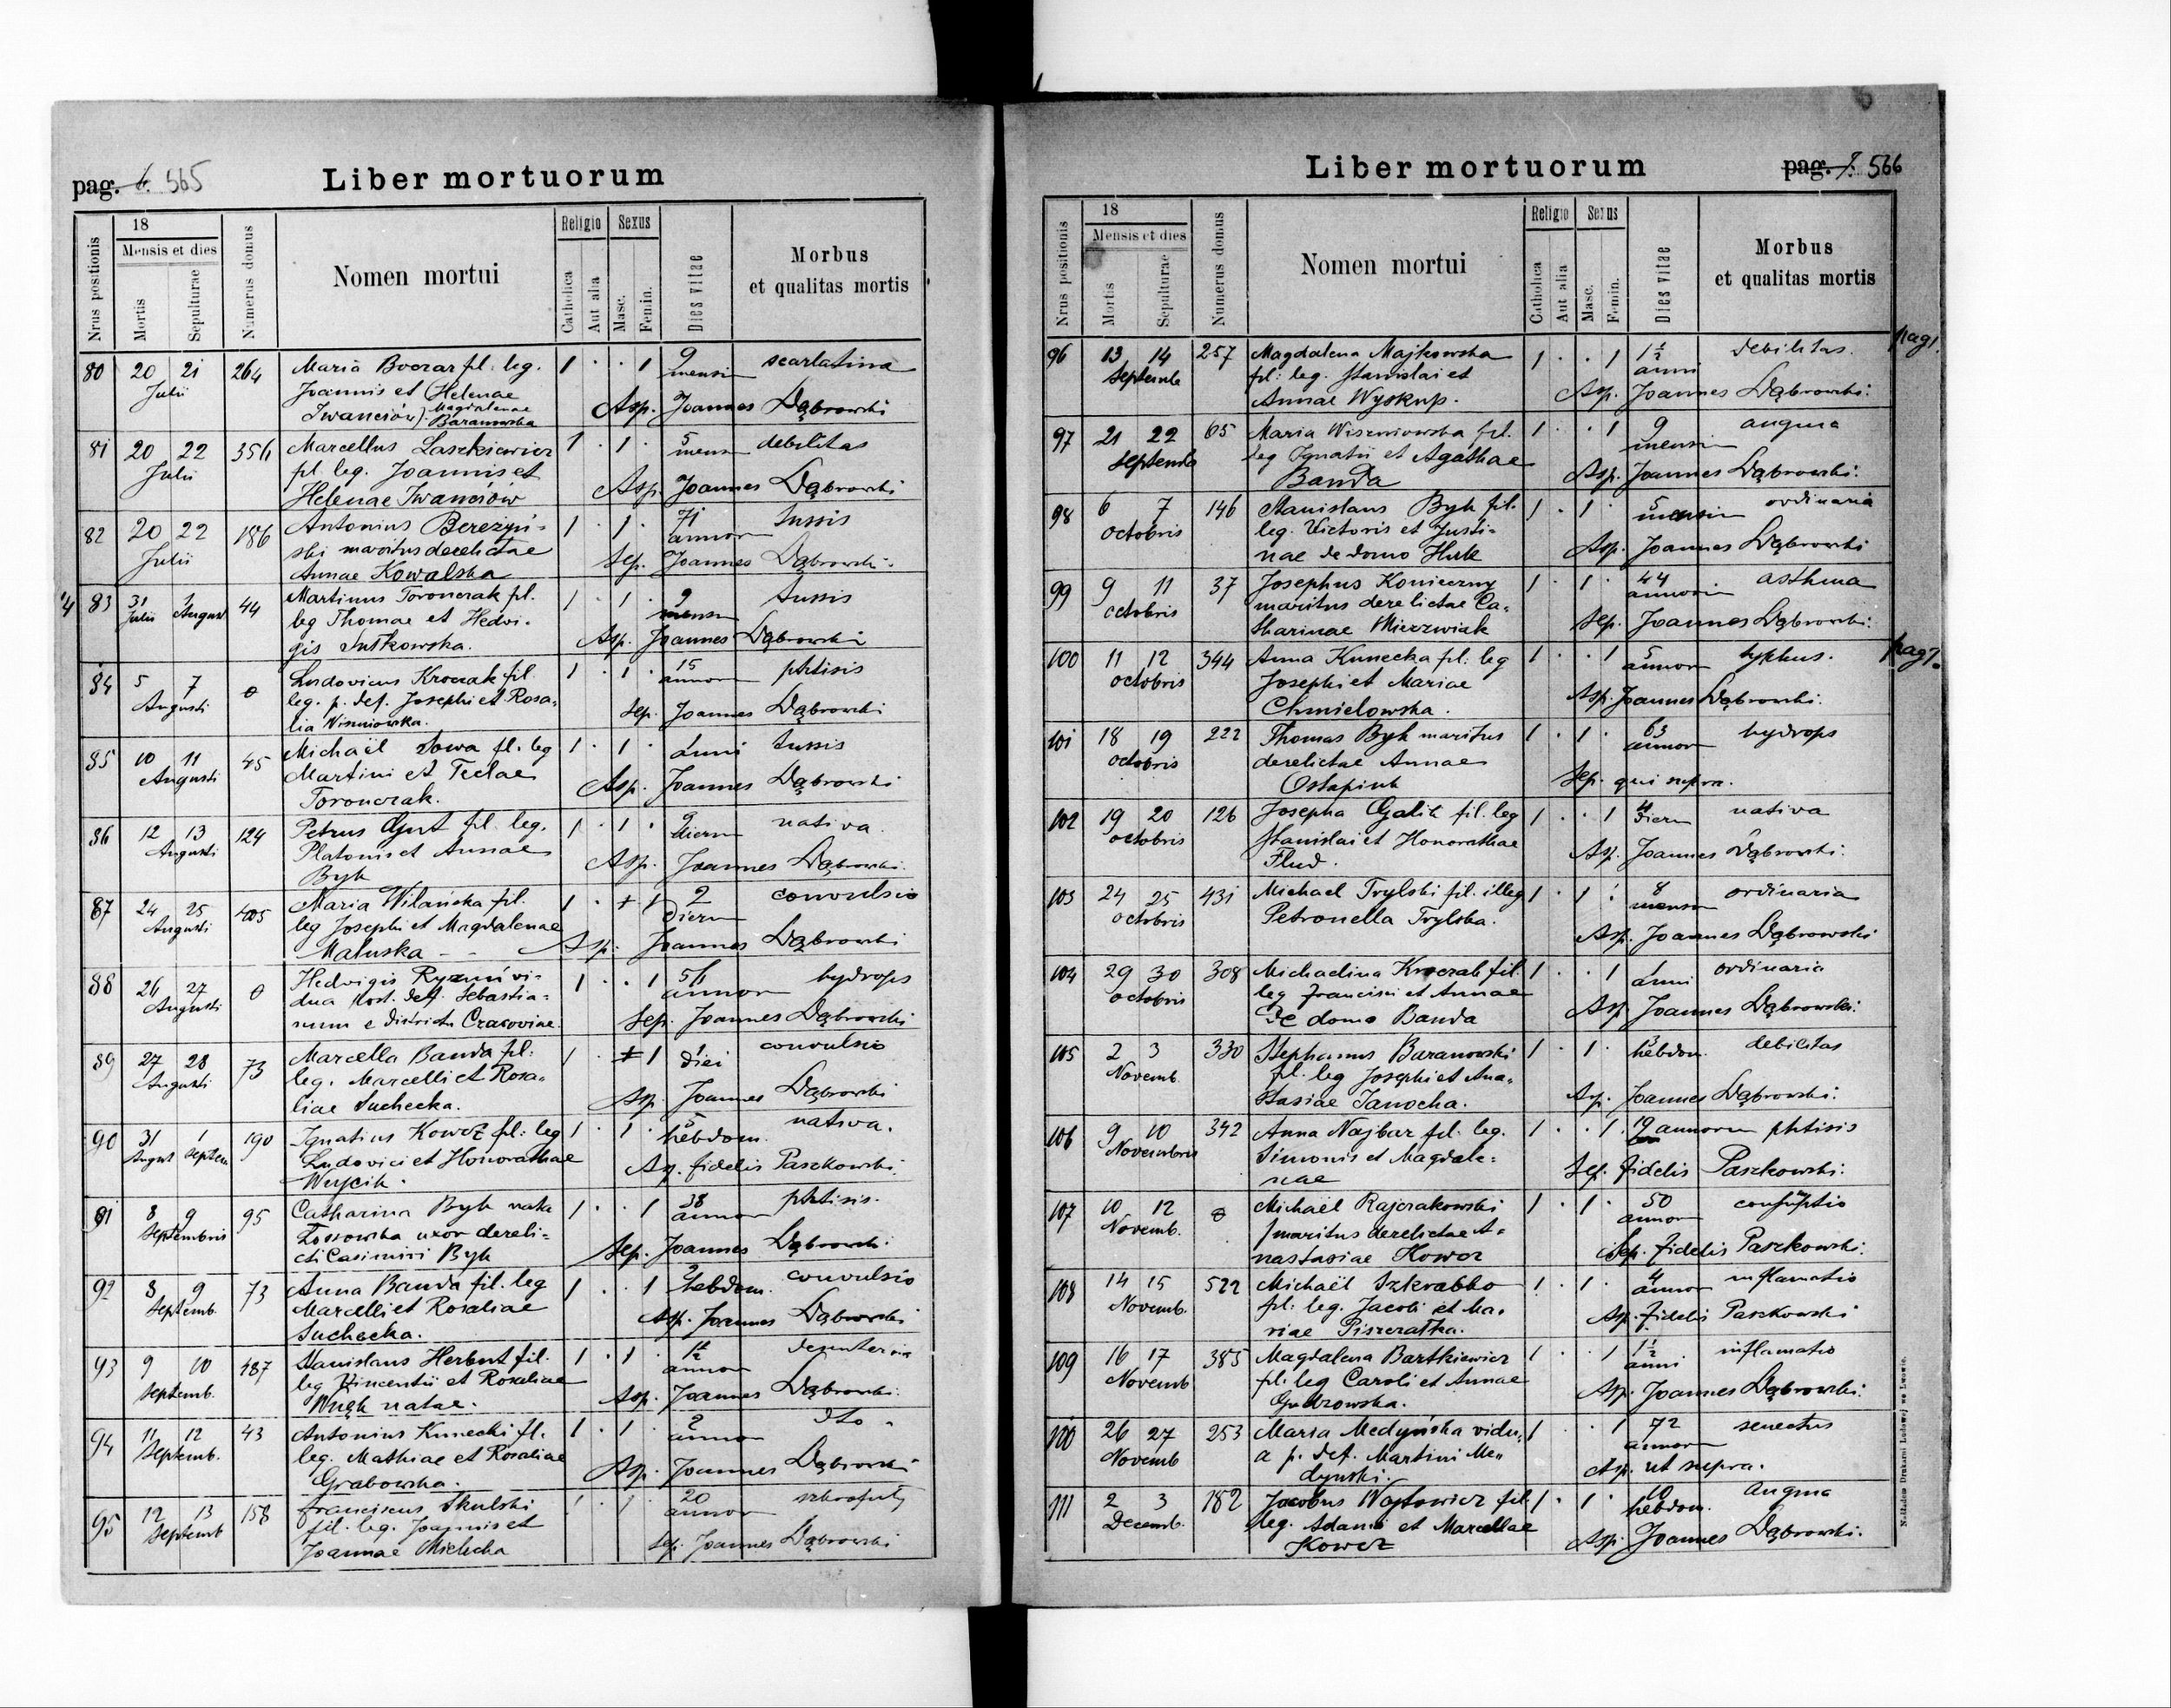 pag. 6. 565
Liber mortuorum
Nrus positionis
18
Mensis et dies
Mortis
Sepulturae
Numerus domus
Nomen mortui
Religio
Catholica
Aut alia
Sexus
Masc.
Femin.
Dies vitae
Morbus
et qualitas mortis
80 20 21 264 Maria Boczar fil. leg. 1 · · 1 9 scarlatina
Julii Joannis et Helenae mensium
Iwanciów) Magdalenae Asp. Joannes Dąbrowski
Baranowska
81 20 22 356 Marcellus Laszkiewicz 1 · 1 · 5 debilitas
Julii fil. leg. Joannis et mens
Helenae Iwanciów Asp. Joannes Dąbrowski
82 20 22 186 Antonius Berezyń- 1 · 1 · 71 tussis
Julii ski maritus derelictae annor
Annae Kowalska Sep. Joannes Dąbrowski
83 31 1 44 Martinus Toronczak fil. 1 · 1 · 9 tussis
Julii August leg Thomae et Hedvi- mensi
gis Sutkowska. Asp. Joannes Dąbrowski
84 5 7 0 Ludovicus Kroczak fil. 1 · 1 · 15 phtisis
Augusti leg. p. def. Josephi et Rosa- annor
lia Wiszniowska. Sep. Joannes Dąbrowski
85 10 11 45 Michaël Sowa fil. leg 1 · 1 · 1 tussis
Augusti Martini et Teclae anni
Toronczak. Asp. Joannes Dąbrowski
86 12 13 124 Petrus Gut fil. leg. 1 · 1 · 9 nativa.
Augusti Platonis et Annae dierum
Byk Asp. Joannes Dąbrowski.
87 24 25 405 Maria Wilańska fil. 1 · + 1 2 convulsio
Augusti leg Josephi et Magdalenae dierum
Matuska - - Asp: Joannes Dąbrowski
88 26 27 0 Hedvigis Ryzmu vi- 1 · · 1 56 hydrops
Augusti dua post. def. Sebastia- annor
num e districtu Cracoviae. Sep. Joannes Dąbrowski
89 27 28 73 Marcella Banda fil: 1 · + 1 1 convulsio
Augusti leg. Marcelli et Rosa- diei
liae Suchecka. Asp. Joannes Dąbrowski
90 31 1 190 Ignatius Kowcz fil: leg 1 · 1 · 5 nativa.
August Septem Ludovici et Honorathae hebdom.
Wujcik. Asp. fidelis Paszkowski.
91 8 9 95 Catharina Byk nata 1 · · 1 38 phtisis.
Septembris Łossowska uxor dereli- annor
cti Casimiri Byk Sep. Joannes Dąbrowski
92 8 9 73 Anna Banda fil. leg 1 · · 1 2 convulsio
Septemb. Marcelli et Rosaliae hebdom.
Suchecka. Asp. Joannes Dąbrowski
93 9 10 487 Stanislaus Herbut fil. 1 · 1 · 1½ desenteria
Septemb. leg Vincentii et Rosaliae annor
Wnęk natae. Asp. Joannes Dąbrowski.
94 11 12 43 Antonius Kunecki fl. 1 · 1 · 2 dto
Septemb. leg. Mathiae et Rosaliae annor
Grabowska. Asp. Joannes Dąbrowski
95 12 13 158 Franciscus Skulski 1 · 1 · 20
Septemb fil. leg. Joannis et annor
Joannae Mielicha Sep. Joannes Dąbrowski
Liber mortuorum
pag. 7. 566
Nrus positionis
18
Mensis et dies
Mortis
Sepulturae
Numerus domus
Nomen mortui
Religio
Catholica
Aut alia
Sexus
Masc.
Femin.
Dies vitae
Morbus
et qualitas mortis
96 13 14 257 Magdalena Majkowska 1 · · 1 1½ debilitas.
Septemb fil: leg. Stanislai et anni
Annae Wyskup. Asp. Joannes Dąbrowski.
97 21 22 65 Maria Wiszniowska fil. 1 · · 1 9 angina
Septemb leg Ignatii et Agathae mensi
Banda Asp. Joannes Dąbrowski.
98 6 7 146 Stanislaus Byk fil. 1 · 1 · 5 ordinaria
octobris leg. Victoris et Justi- mensi
nae de domo Huk Asp. Joannes Dąbrowski
99 9 11 37 Josephus Konieczny 1 · 1 · 44 asthma
octobris maritus derelictae Ca- annor
tharinae Mierzwiak Sep. Joannes Dąbrowski.
100 11 12 344 Anna Kunecka fil: leg 1 · · 1 5 typhus.
octobris Josephi et Mariae annor
Chmielowska. Asp. Joannes Dąbrowski.
101 18 19 222 Thomas Byk maritus 1 · 1 · 63 hydrops
octobris derelictae Annae annor
Ostapiuk Sep. qui supra.
102 19 20 126 Josepha Galik fil. leg 1 · · 1 4 nativa
octobris Stanislai et Honorathae dierum
Flud. Asp. Joannes Dąbrowski.
103 24 25 431 Michael Trylski fil. illeg 1 · 1 · 8 ordinaria
octobris Petronella Trylska. mensi
Asp. Joannes Dąbrowski
104 29 30 308 Michaelina Kroczak fil. 1 · · 1 1 ordinaria
octobris leg Francisci et Annae anni
de domo Banda Asp. Joannes Dąbrowski.
105 2 3 330 Stephanus Baranowski 1 · 1 · 3 debilitas
Novemb. fil. leg Josephi et Ana- hebdom.
stasiae Janocha. Asp. Joannes Dąbrowski.
106 9 10 342 Anna Najbar fil. leg. 1 · · 1 19 annorum phtisis
Novembris Simonis et Magdale-
nae Sep. fidelis Paszkowski.
107 10 12 0 Michaël Rajczakowski 1 · 1 · 50 consumptio
Novemb. maritus derelictae A- annor
nastasiae Kowcz Sep. fidelis Paszkowski.
108 14 15 522 Michaël Szkrabko 1 · 1 · 4 inflamatio
Novemb. fil: leg. Jacobi et Ma- annor
riae Piszczatka. Asp. fidelis Paszkowski
109 16 17 385 Magdalena Bartkiewicz 1 · · 1 1½ inflamatio
Novemb fil: leg Caroli et Annae anni
Gudzowska. Asp. Joannes Dąbrowski.
110 26 27 253 Maria Medyńska vidu- 1 · · 1 72 senectus
Novemb a p. def. Martini Me- annor
dynski. Asp. ut supra.
111 2 3 182 Jacobus Wojtowicz fil 1 · 1 · 10 angina
Decemb. leg. Adami et Marcellae hebdom.
Kowcz Asp. Joannes Dąbrowski.
Nakładem Drukarni Ludowej we Lwowie.